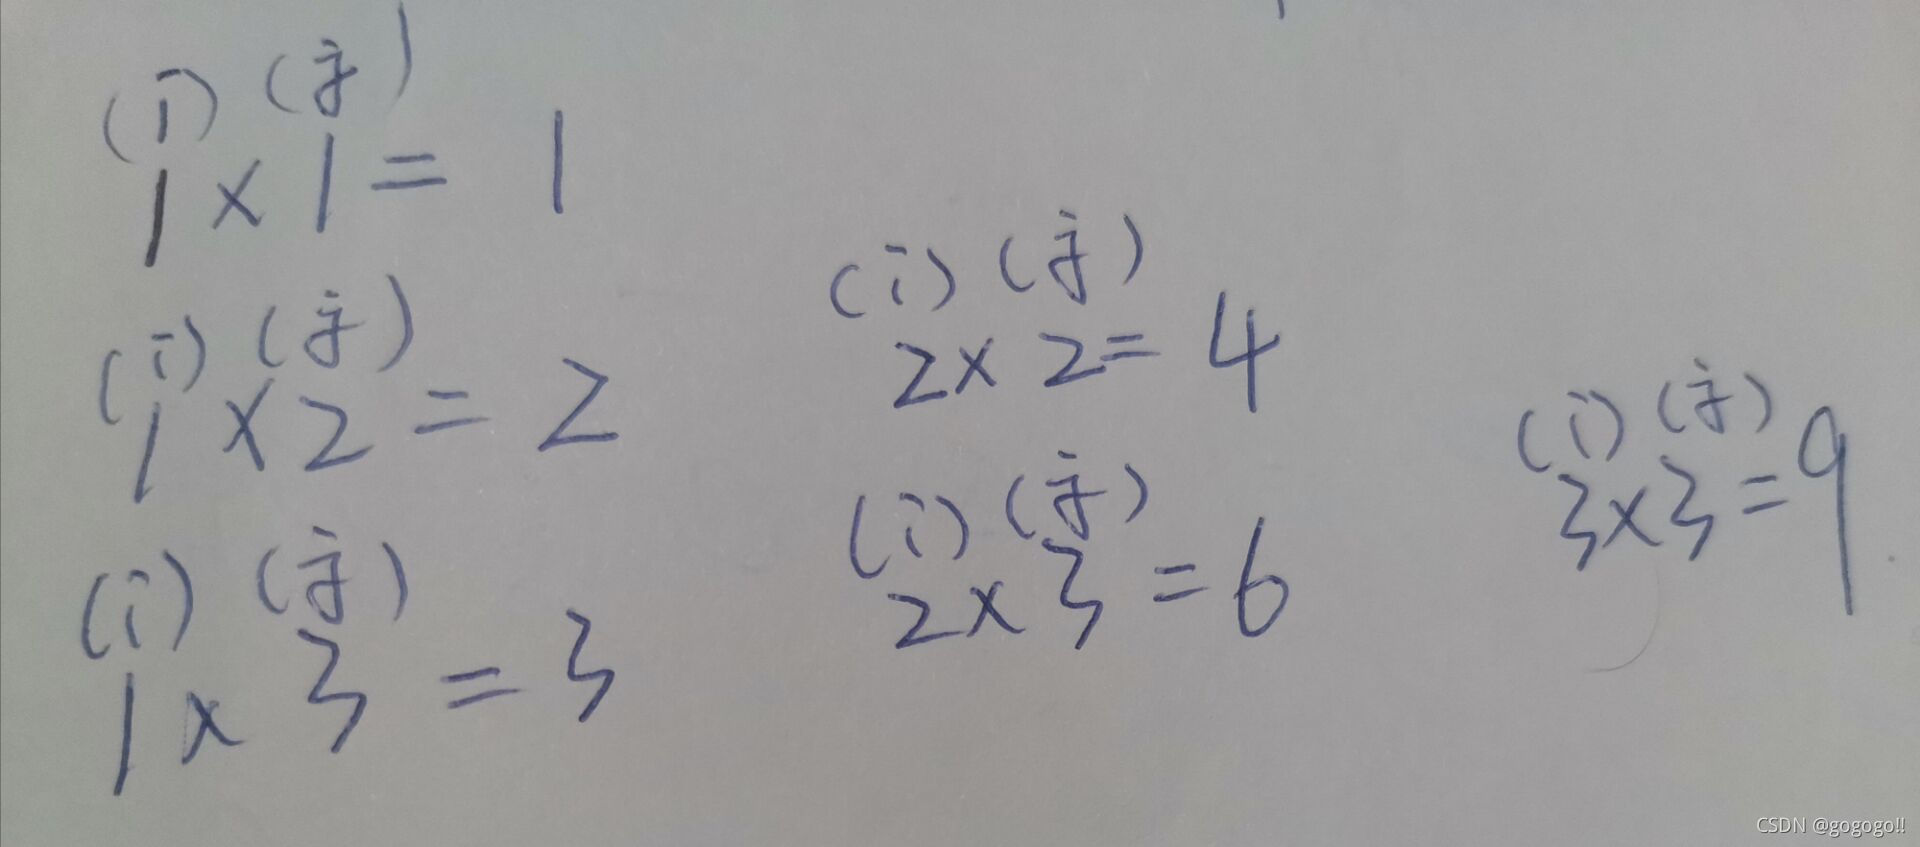 (i) (j)
1 × 1 = 1
(i) (j) (i) (j)
1 × 2 = 2 2 × 2 = 4
(i) (j) (i) (j) (i) (j)
1 × 3 = 3 2 × 3 = 6 3 × 3 = 9
CSDN @gogogo!!